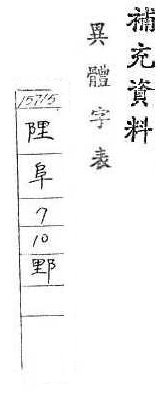 補充資料
異體字表
15715
陻
阜
7
10
野